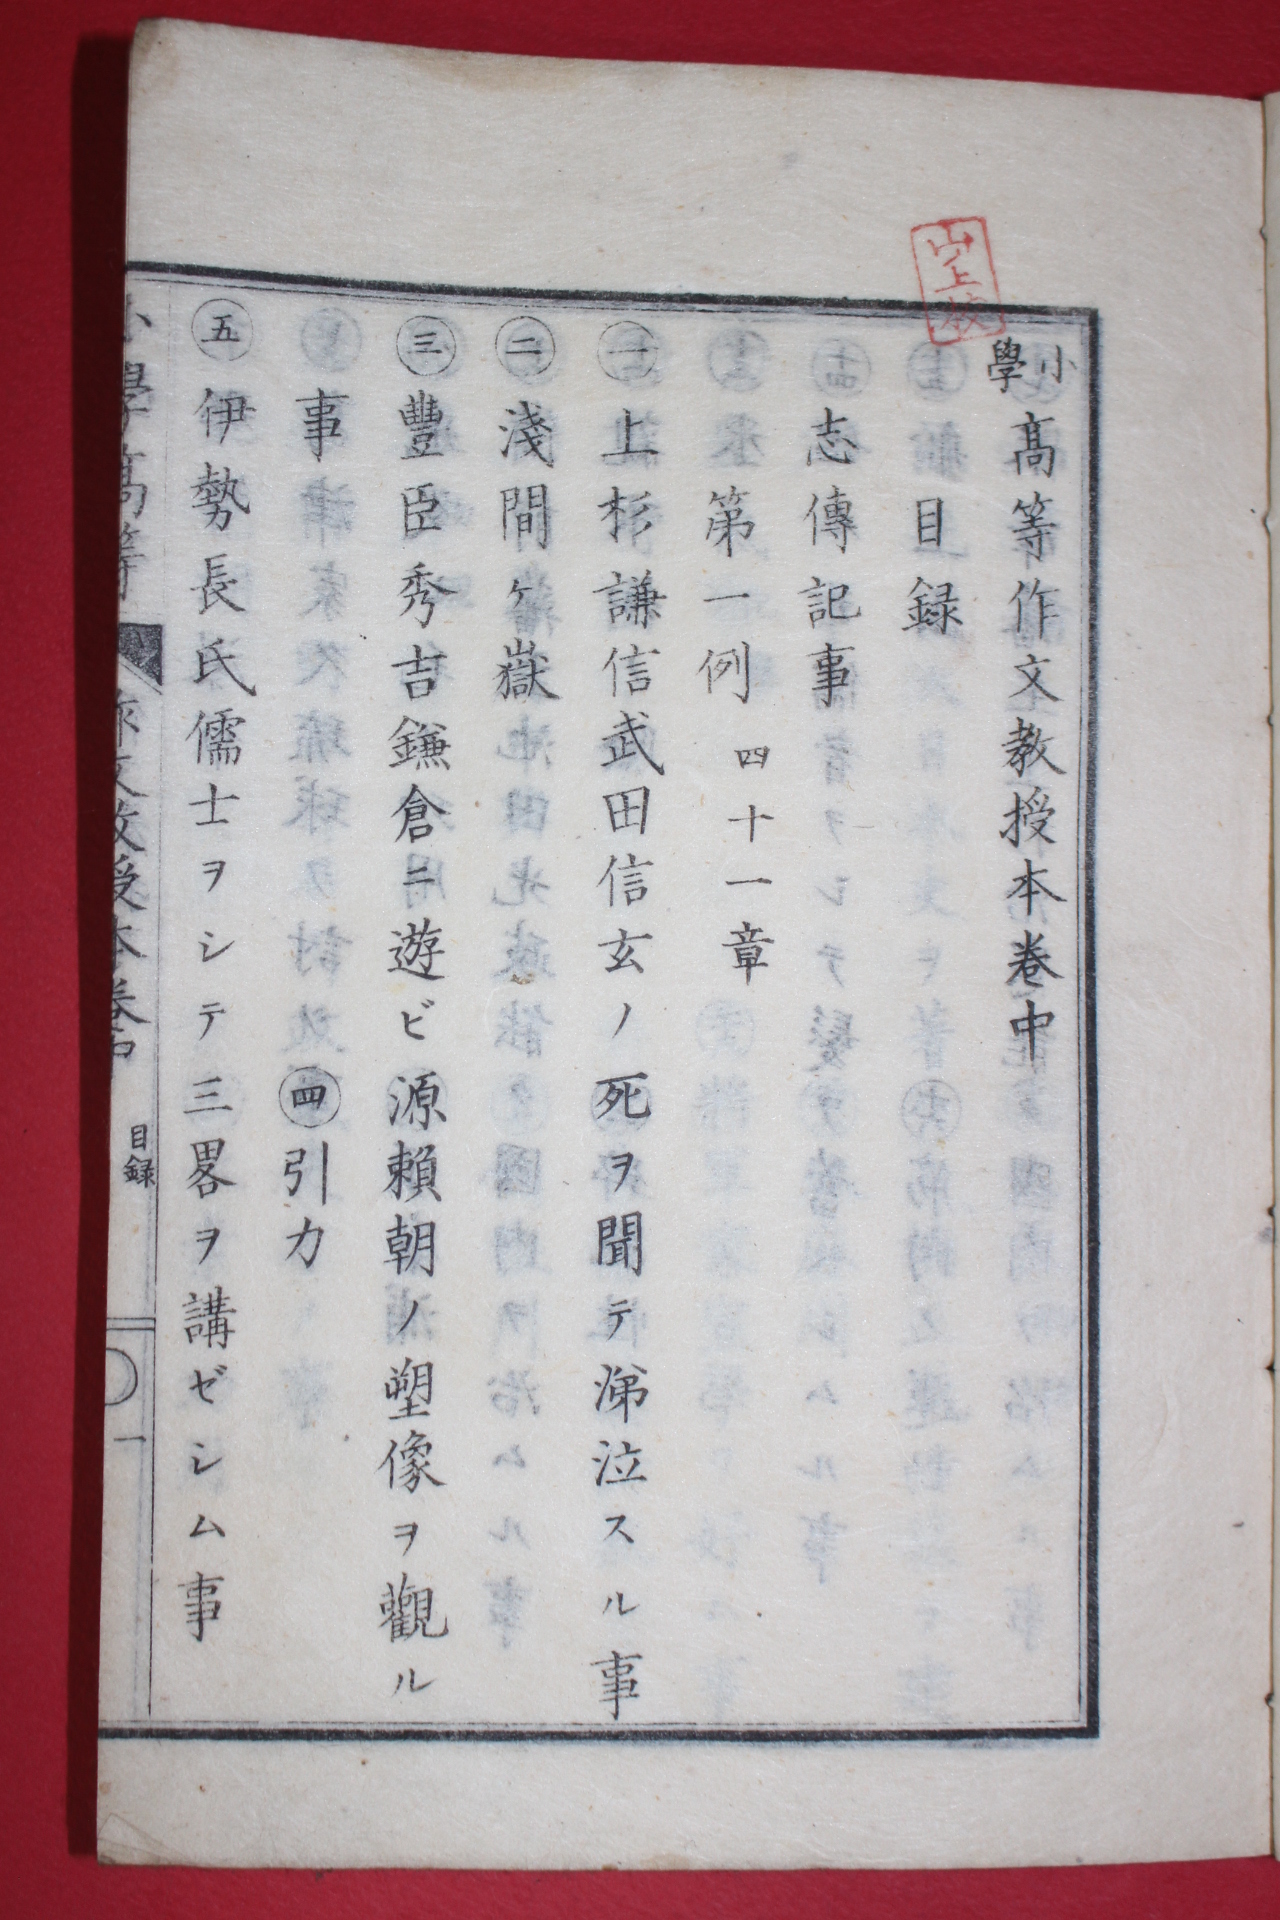 山上校
小學高等作文教授本卷中
目録
志傳記事
第一例 四十一章
㊀上杉謙信武田信玄ノ死ヲ聞テ涕泣スル事
㊁淺間ヶ嶽
㊂豐臣秀吉鎌倉ニ遊ビ源賴朝ノ塑像ヲ觀ル
事 ㊃引力
㊄伊勢長氏儒士ヲシテ三畧ヲ講ゼシム事
小學高等 作文教授本卷中 目録 一